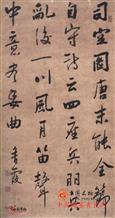 司空圖唐末能全節
自守詩云四座賓朋兵
亂後一川風月笛聲
中意尽委曲